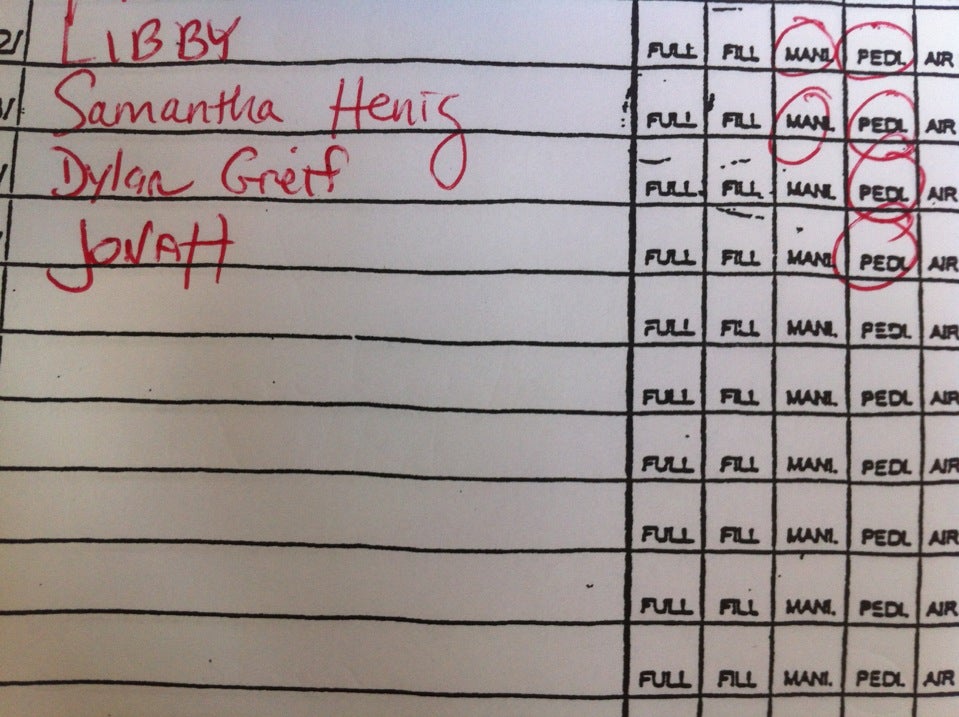 2/ LIBBY FULL FILL MANI. PEDI. AIR
/ Samantha Henig FULL FILL MANI. PEDI. AIR
Dylan Greif FULL FILL MANI. PEDI. AIR
JONAH FULL FILL MANI. PEDI. AIR
FULL FILL MANI. PEDI. AIR
FULL FILL MANI. PEDI. AIR
FULL FILL MANI. PEDI. AIR
FULL FILL MANI. PEDI. AIR
FULL FILL MANI. PEDI. AIR
FULL FILL MANI. PEDI. AIR